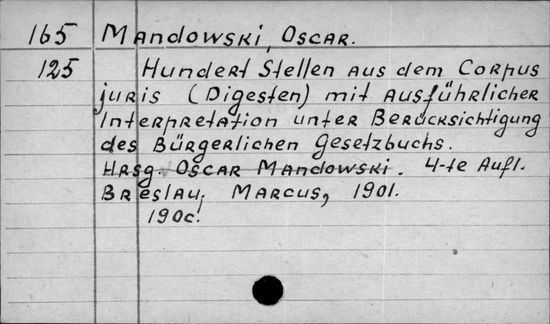 165 Mandowski, Oscar.
125 Hundert Stellen aus dem Corpus
juris (Digesten) mit ausführlicher
Interpretation unter Berücksichtigung
des Bürgerlichen Gesetzbuchs.
Hrsg. Oscar Mandowski. 4-te Aufl.
Breslau, Marcus, 1901.
190 c.